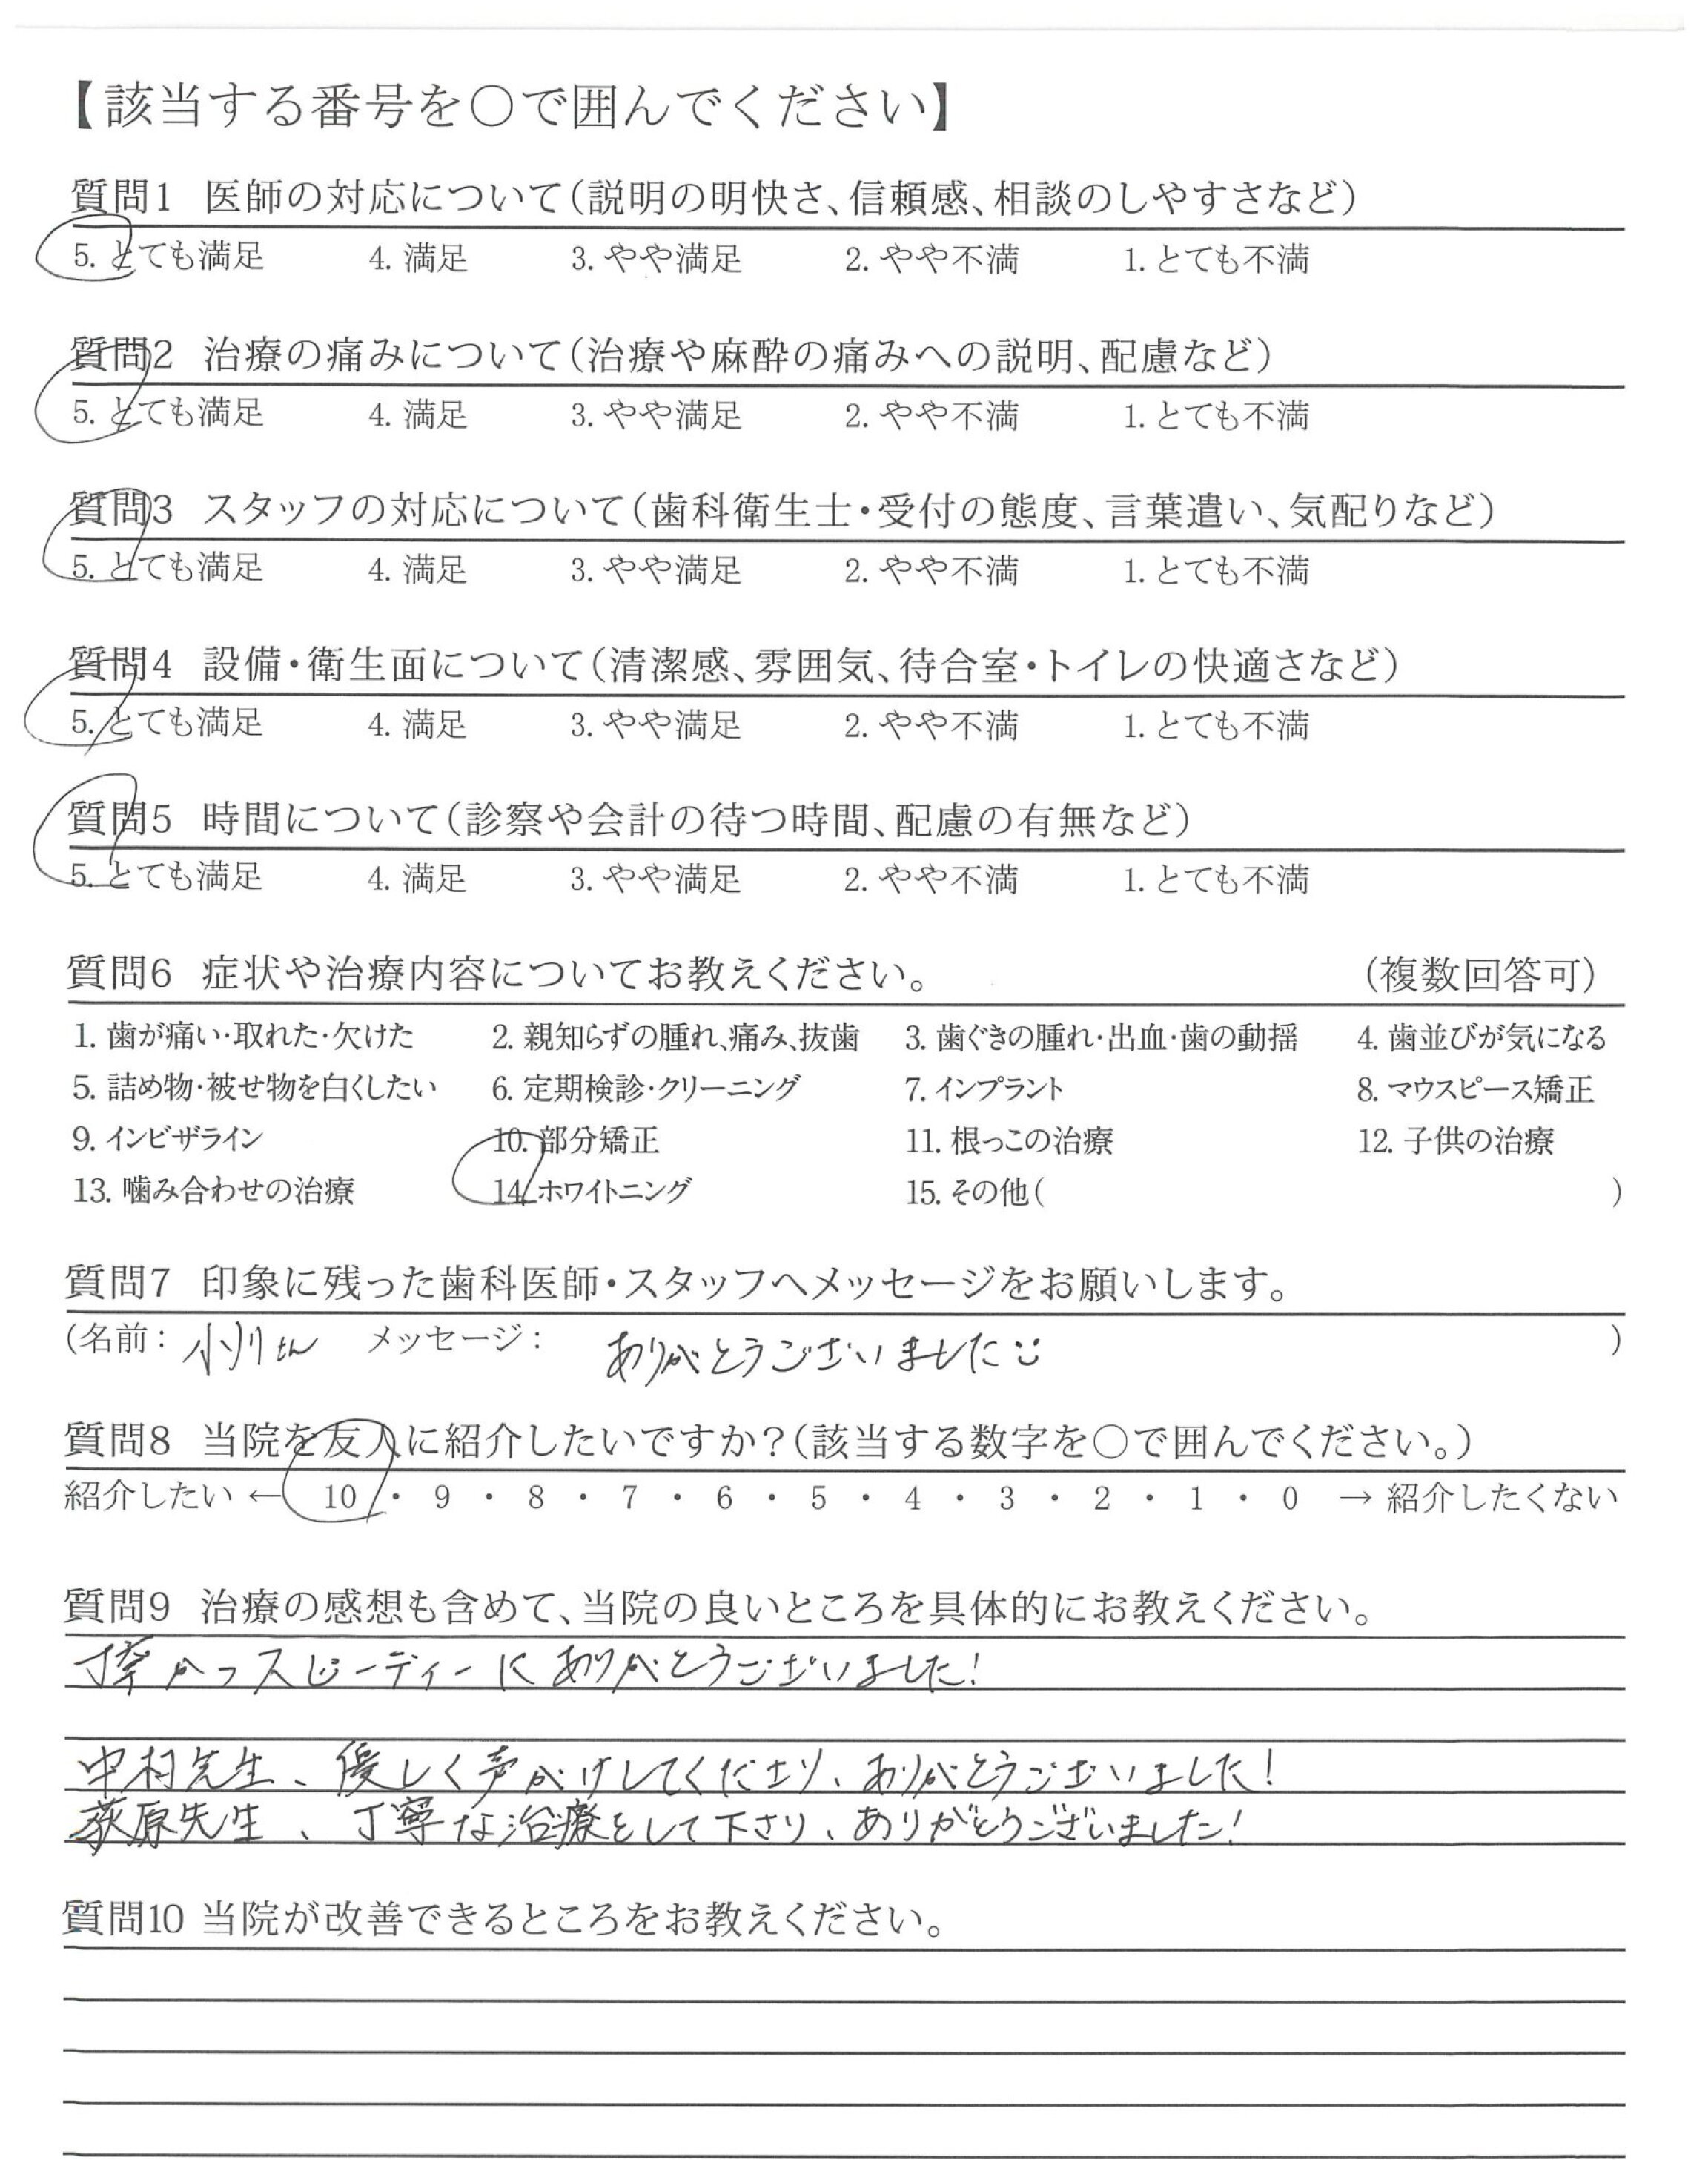 【該当する番号を○で囲んでください】
質問1 医師の対応について(説明の明快さ、信頼感、相談のしやすさなど)
5. とても満足 4. 満足 3. やや満足 2. やや不満 1. とても不満
質問2 治療の痛みについて(治療や麻酔の痛みへの説明、配慮など)
5. とても満足 4. 満足 3. やや満足 2. やや不満 1. とても不満
質問3 スタッフの対応について(歯科衛生士・受付の態度、言葉遣い、気配りなど)
5. とても満足 4. 満足 3. やや満足 2. やや不満 1. とても不満
質問4 設備・衛生面について(清潔感、雰囲気、待合室・トイレの快適さなど)
5. とても満足 4. 満足 3. やや満足 2. やや不満 1. とても不満
質問5 時間について(診察や会計の待つ時間、配慮の有無など)
5. とても満足 4. 満足 3. やや満足 2. やや不満 1. とても不満
質問6 症状や治療内容についてお教えください。 (複数回答可)
1. 歯が痛い・取れた・欠けた 2. 親知らずの腫れ、痛み、抜歯 3. 歯ぐきの腫れ・出血・歯の動揺 4. 歯並びが気になる
5. 詰め物・被せ物を白くしたい 6. 定期検診・クリーニング 7. インプラント 8. マウスピース矯正
9. インビザライン 10. 部分矯正 11. 根っこの治療 12. 子供の治療
13. 噛み合わせの治療 14. ホワイトニング 15. その他( )
質問7 印象に残った歯科医師・スタッフへメッセージをお願いします。
(名前: 小川さん メッセージ: ありがとうございました )
質問8 当院を友人に紹介したいですか?(該当する数字を○で囲んでください。)
紹介したい ← 10 ・ 9 ・ 8 ・ 7 ・ 6 ・ 5 ・ 4 ・ 3 ・ 2 ・ 1 ・ 0 → 紹介したくない
質問9 治療の感想も含めて、当院の良いところを具体的にお教えください。
かつスピーディーにありがとうございました!
中村先生、優しく声がけしてくださり、ありがとうございました!
荻原先生、丁寧な治療をして下さり、ありがとうございました!
質問10 当院が改善できるところをお教えください。